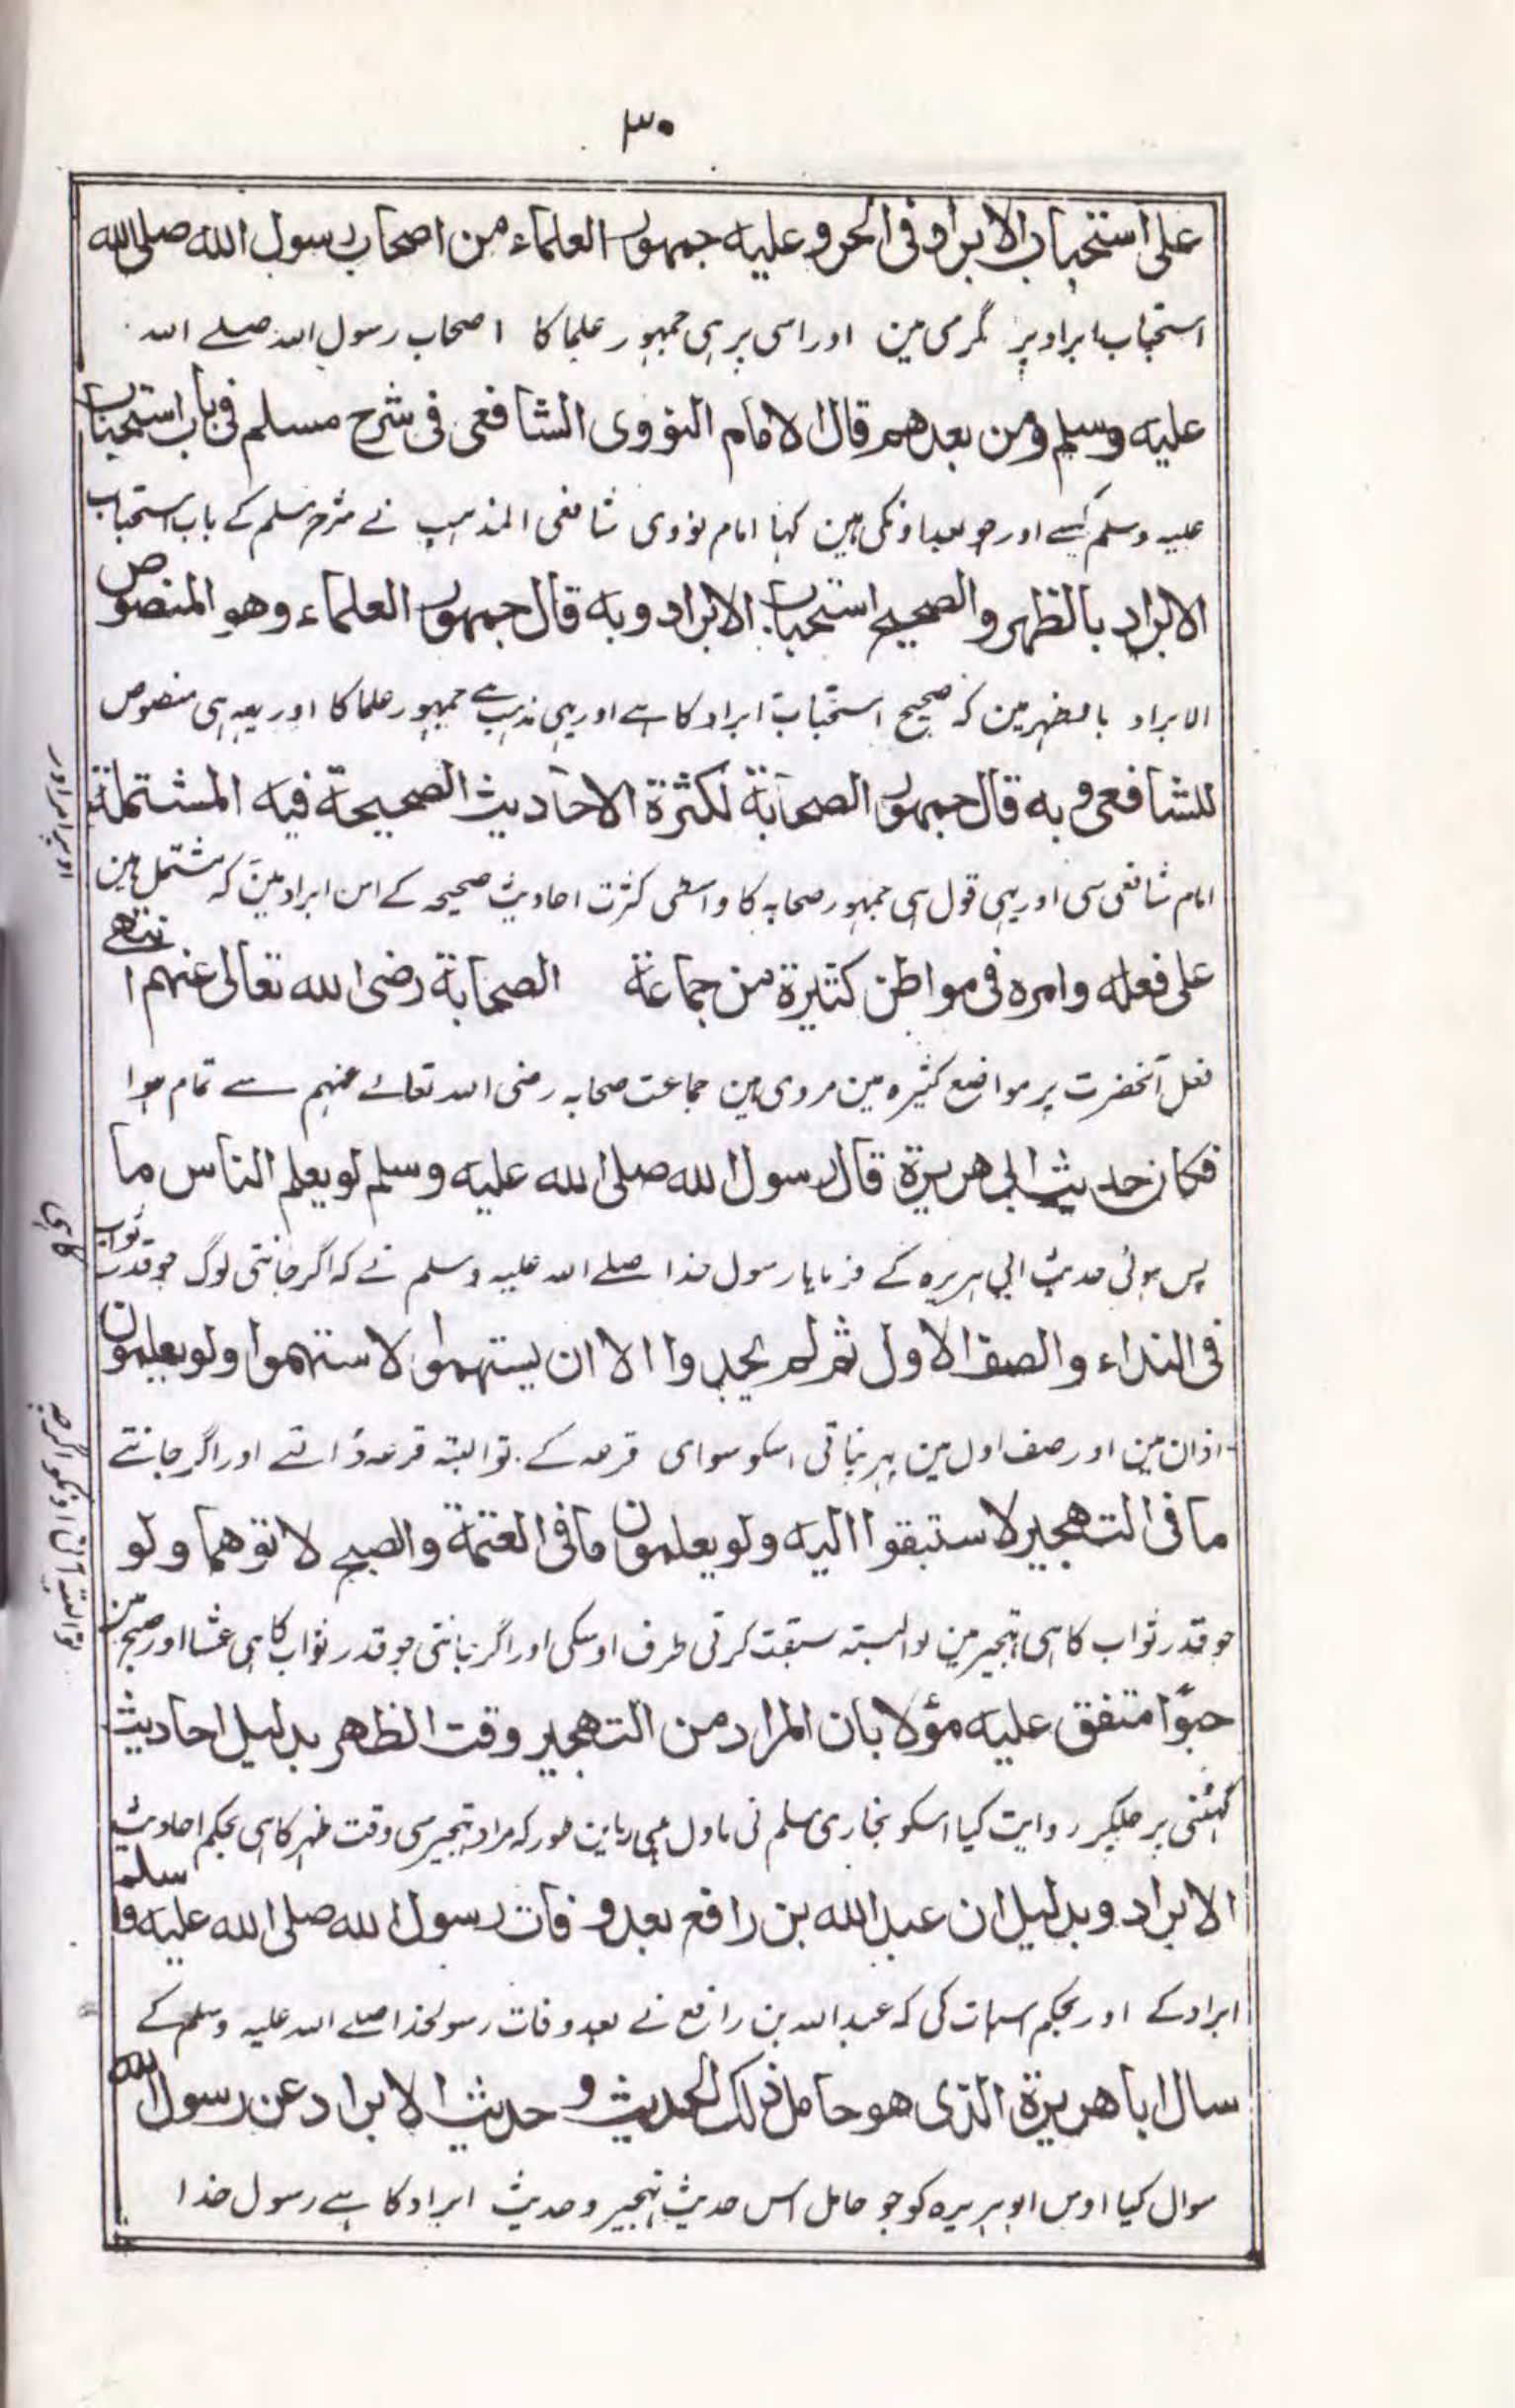 ۳۰
على استحباب الابراد فى الحر و عليه جمهور العلماء من اصحاب رسول الله صلى الله
استحباب ابراد پر گرمی مین اور اسی پر ہی جمہور علما کا اصحاب رسول اللہ صلے اللہ
عليه وسلم ومن بعدهم قال الامام النووى الشافعى فى شرح مسلم فى باب استحباب
علیہ وسلم کیسے اور جو بعد اونکی ہین کہا امام نووی شافعی المذہب نے شرح مسلم کے باب استحباب
الابراد بالظهر والصحيح استحباب الابراد وبه قال جمهور العلماء وهو المنصوص
الابراد بالظہر مین کہ صحیح استحباب ابراد کا ہے اور یہی مذہب ہے جمہور علما کا اور یہہ ہی منصوص
للشافعى و به قال جمهور الصحابة لكثرة الاحاديث الصحيحة فيه المشتملة
امام شافعی سی اور یہی قول ہی جمہور صحابہ کا واسطی کثرت احادیث صحیحہ کے اس ابراد مین کہ مشتمل ہین
على فعله وامره فى مواطن كثيرة من جماعة الصحابة رضى الله تعالى عنهم انتهے
فعل آنحضرت پر مواضع کثیرہ مین مروی ہین جماعت صحابہ رضی اللہ تعالے عنہم سے تمام ہوا
فكان حديث ابى هريرة قال رسول الله صلى الله عليه وسلم لو يعلم الناس ما
پس ہوئی حدیث ابی ہریرہ کے فرمایا رسول خدا صلے اللہ علیہ وسلم نے کہ اگر جانتی لوگ جو قدر ثواب
فى النداء والصف الاول ثم لم يجدوا الا ان يستهموا لاستهموا ولو يعلمون
اذان مین اور صف اول مین پہر نپاتی اسکو سوای قرعہ کے تو البتہ قرعہ ڈالتے اور اگر جانتے
ما فى التهجير لاستبقوا اليه ولو يعلمون ما فى العتمة والصبح لاتوهما ولو
جو قدر ثواب کا ہی تہجیر مین تو البتہ سبقت کرتی طرف اوسکی اور اگر جانتی جو قدر ثواب کا ہی عشا اور صبح مین
حبوًا متفق عليه مؤلا بان المراد من التهجير وقت الظهر بدليل احاديث
گہٹنی پر چلکر روایت کیا اسکو بخاری مسلم نی ماول ہی باین طور کہ مراد تہجیر سی وقت ظہر کا ہی بحکم احادیث
الابراد وبدليل ان عبد الله بن رافع بعد وفات رسول الله صلى الله عليه وسلم
ابراد کے اور بحکم اسبات کی کہ عبد اللہ بن رافع نے بعد وفات رسولخدا صلے اللہ علیہ وسلم کے
سال ابا هريرة الذى هو حامل ذلك الحديث و حديث الابراد عن رسول الله
سوال کیا اوس ابوہریرہ کو جو حامل اس حدیث تہجیر و حدیث ابراد کا ہے رسول خدا
اوپر امر اور
کا ہی
تو البتہ آتی اونکو اگرچہ